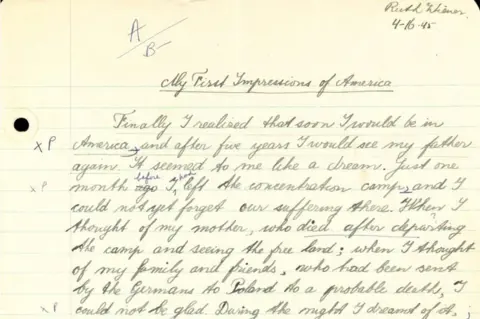 Ruth Wiener
4-16-45
A/B-
My First Impressions of America
Finally I realized that soon I would be in
x P America, and after five years I would see my father
again. It seemed to me like a dream. Just one
before had
x P month ago I left the concentration camp, and I
could not yet forget our suffering there. When I
thought of my mother, who died after departing
the camp and seeing the free land; when I thought
of my family and friends, who had been sent
by the Germans to Poland to a probable death, I
x P could not be glad. During the night I dreamt of it,;